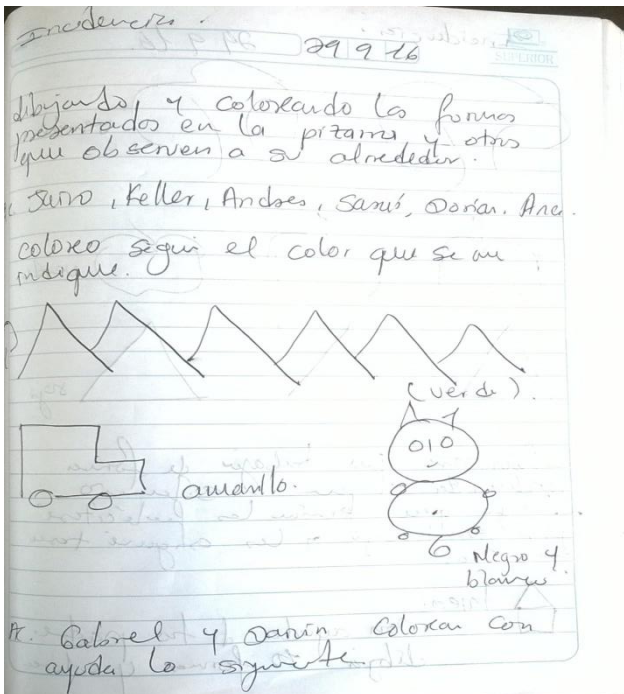 Incidencia.
29 9 16
SUPERIOR
dibujando, y coloreando las formas
presentados en la pizarra y otros
que observen a su alrededor.
Keller, Andres, Dorian. Ana.
coloreo segun el color que se me
indique.
(verde).
amarillo.
Negro y
blanco
Gabriel y Darin colorean con
ayuda lo siguiente